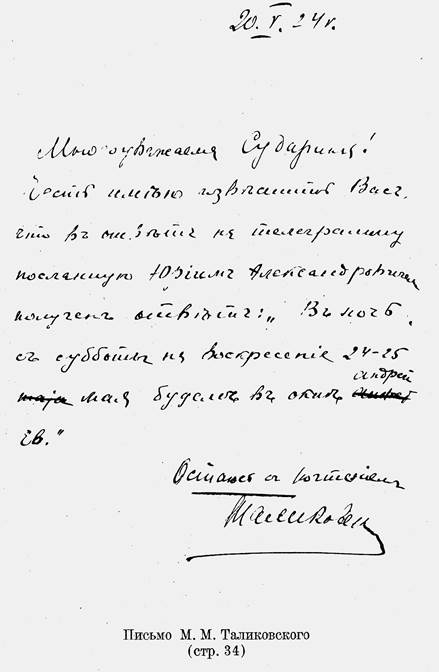 20. V. 24 г.
Многоуважаемая Сударыня!
Честь имѣю извѣстить Васъ,
что въ отвѣтъ на телеграмму
посланную Юріемъ Александровичемъ
полученъ отвѣтъ: „Въ ночь
съ субботы на воскресеніе 24–25
мая будемъ въ Андрей
ев."
Остаюсь съ почтеніемъ
Таликовск
Письмо М. М. Таликовского
(стр. 34)